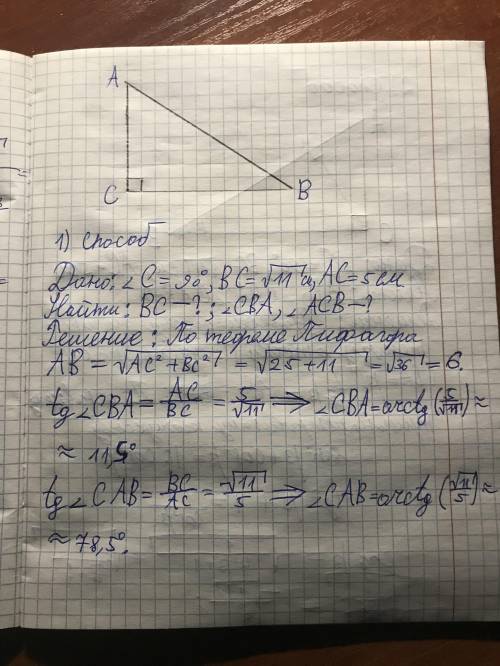 A
C
B
1) Способ
Дано: ∠C = 90°, BC = √11 см, AC = 5 см
Найти: BC — ?; ∠CBA, ∠ACB — ?
Решение: По теореме Пифагора
AB = √AC² + BC² = √25 + 11 = √36 = 6.
tg ∠CBA = AC/BC = 5/√11 ⟹ ∠CBA = arctg (5/√11) ≈
≈ 11,5°
tg ∠CAB = BC/AC = √11/5 ⟹ ∠CAB = arctg (√11/5) ≈
≈ 78,5°.